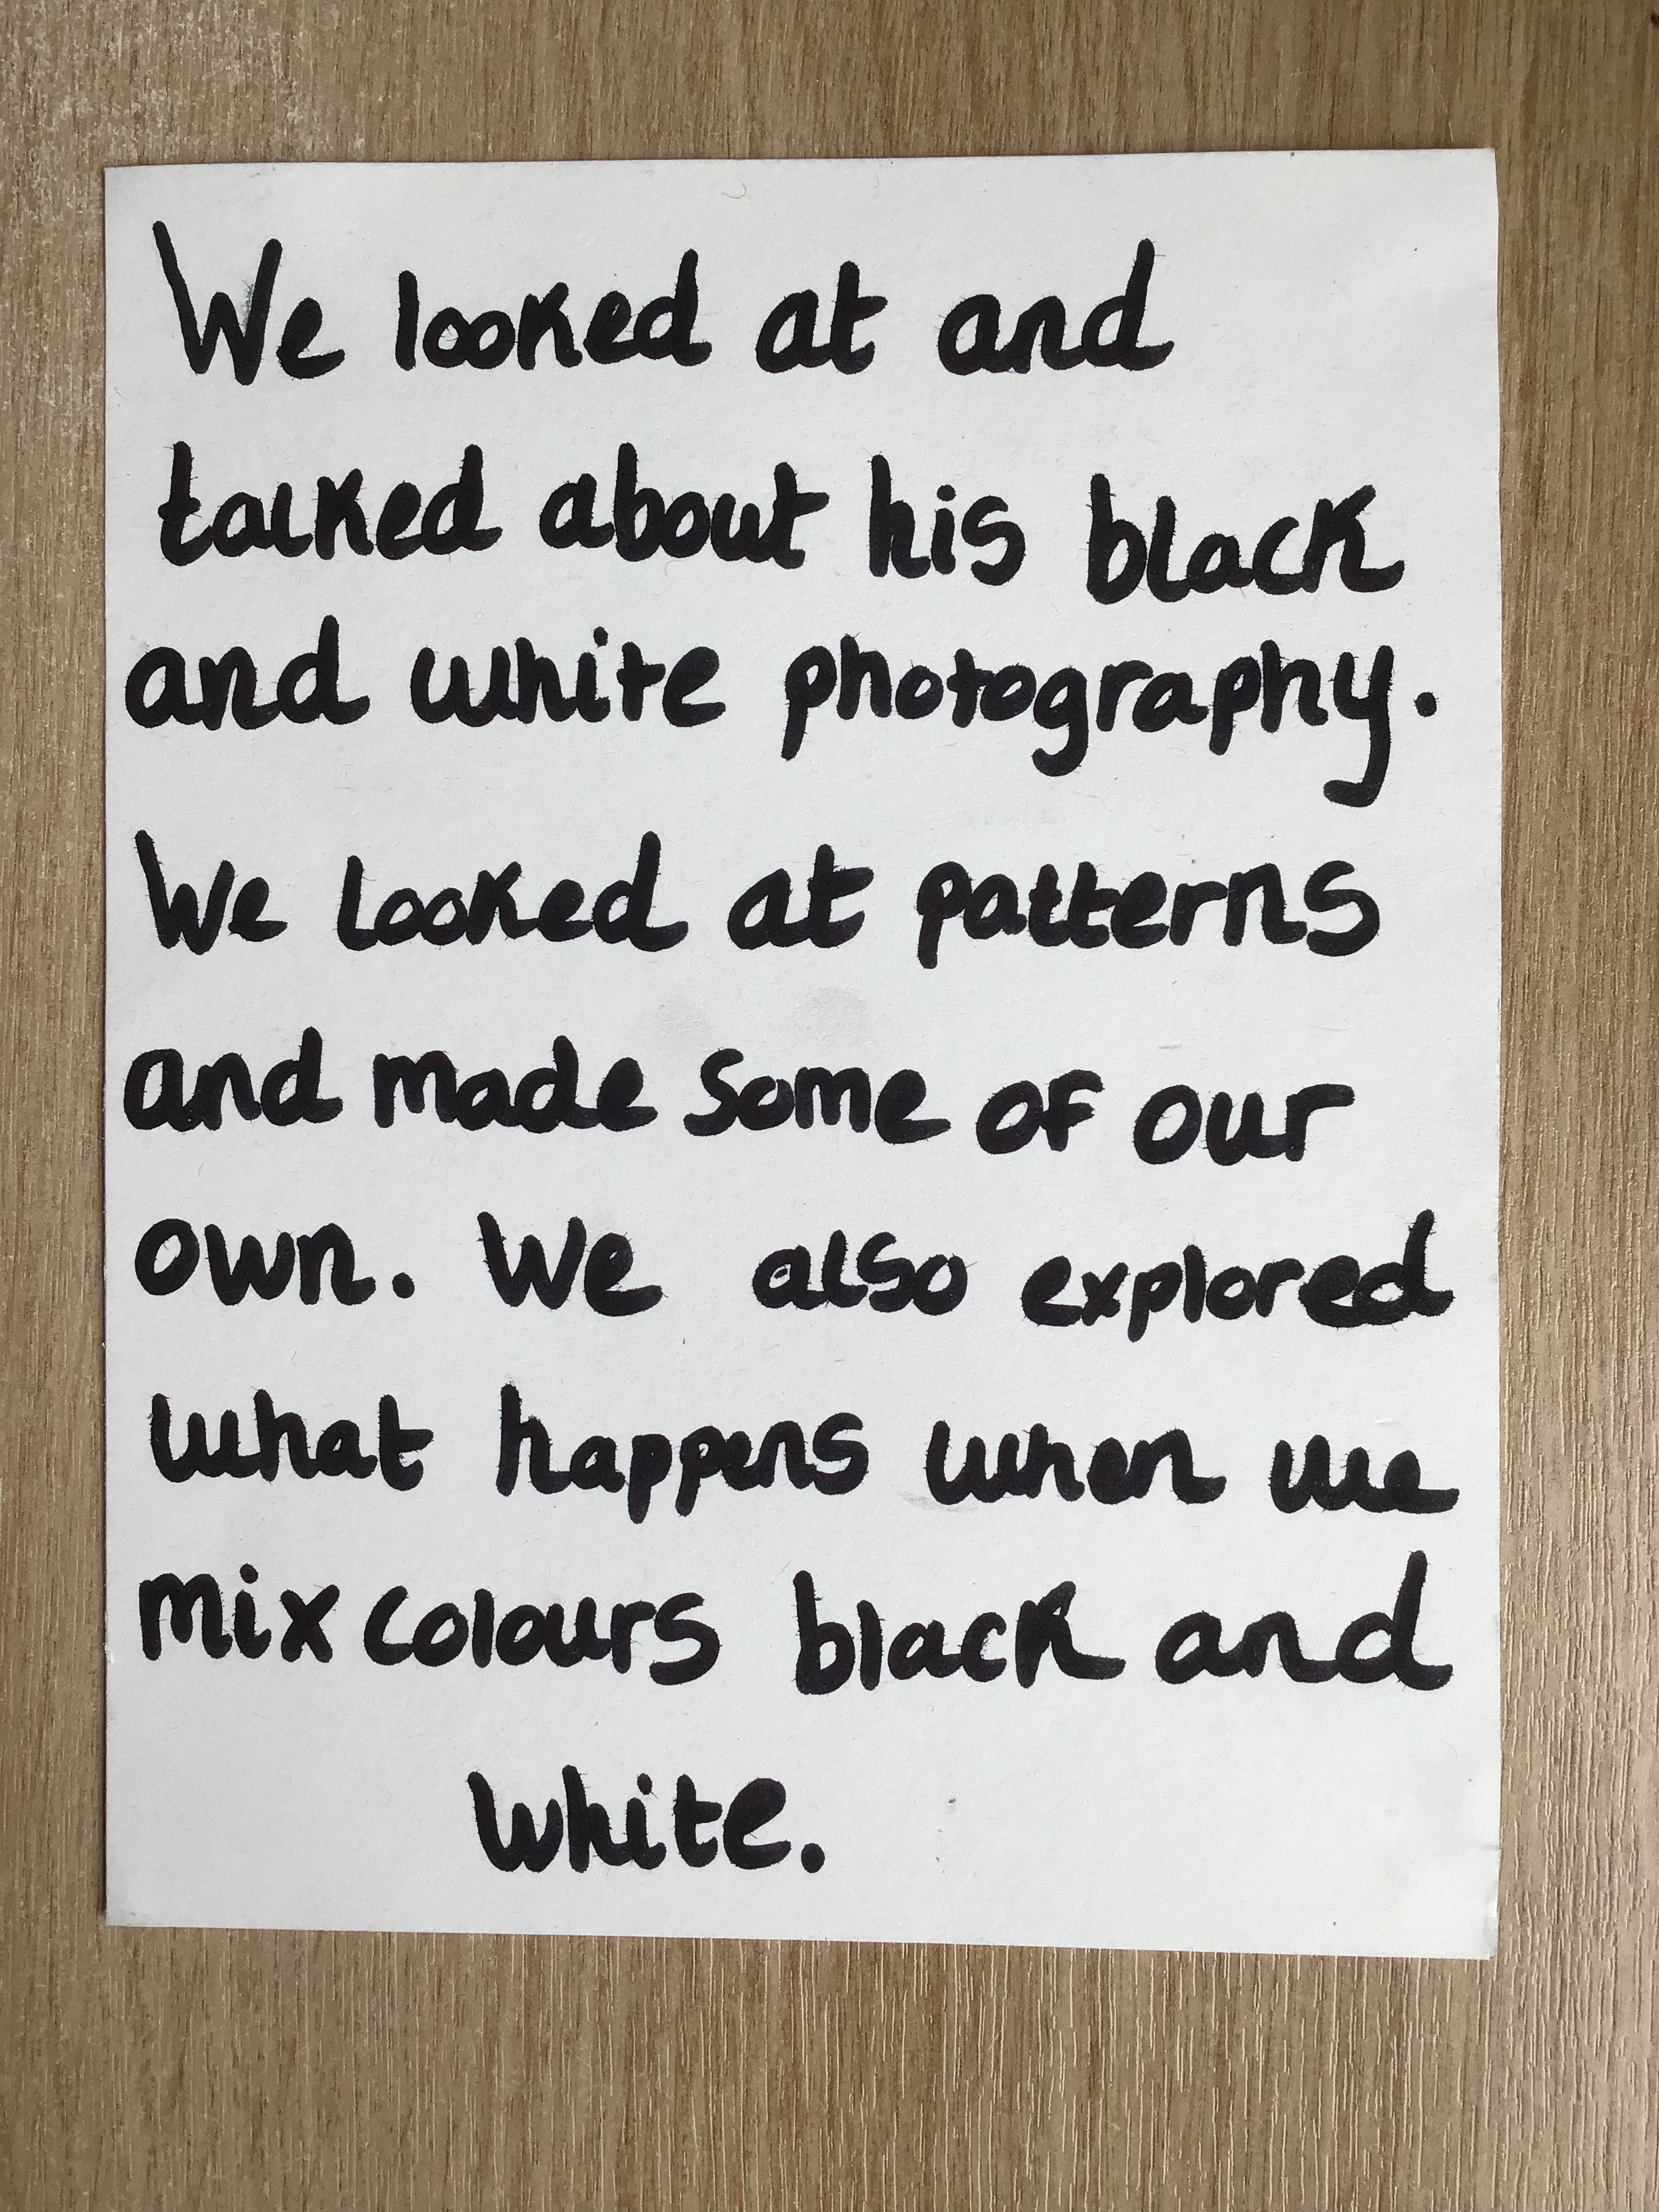 We looked at and
talked about his black
and white photography.
We looked at patterns
and made some of our
own. We also explored
what happens when we
mix colours black and
white.